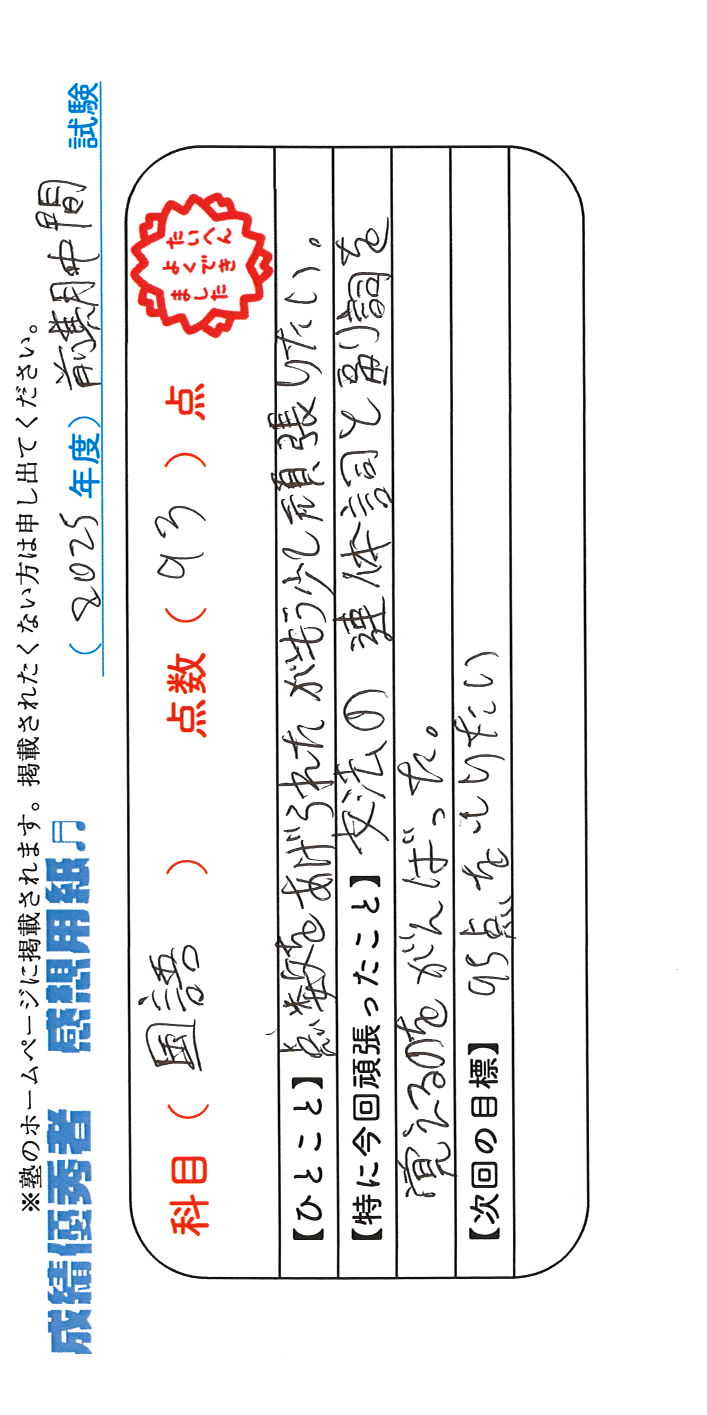 ※塾のホームページに掲載されます。掲載されたくない方は申し出てください。
成績優秀者 感想用紙♫
(2025年度) 前期中間 試験
科目( 国語 ) 点数( 93 )点
たいへん
よくでき
ました
【ひとこと】点数をあげられたがもう少し頑張りたい。
【特に今回頑張ったこと】文法の 連体詞と副詞を
覚えるのをがんばった。
【次回の目標】 95点をとりたい